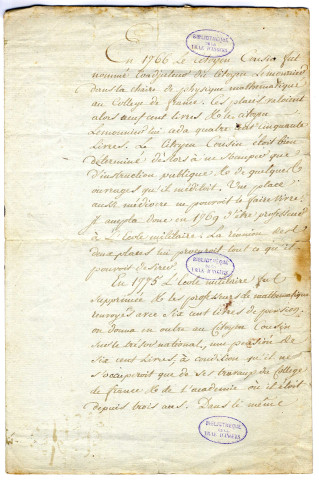 BIBLIOTHEQUE
DE LA
VILLE D'ANGERS
En 1766 Le Citoyen Cousin fut
nommé Coadjuteur du Citoyen Lemonnier
dans la chaire de physique mathematique
au College de france: les plais valoient
alors neuf cent livres & le citoyen
Lemonnier lui ceda quatre cent cinquante
Livres. Le Citoyen Cousin etoit bien
determiné dès lors a ne s'occuper que
d'instruction publique & de quelques
ouvrages qu'il méditoit. Une place
aussi médiocre ne pouvoit le faire vivre:
il accepta donc en 1769 d'être professeur
à L'école militaire: La reunion de ces
deux places lui procuroit tout ce qu'il
pouvoit desirer.
BIBLIOTHEQUE
DE LA
VILLE D'ANGERS
En 1775 L'école militaire fut
supprimée & les professeurs de mathematiques
renvoyés avec six cent livres de pension,
on donna en outre au Citoyen Cousin
sur le trésor national, une pension de
six cent livres, à condition qu'il ne
s'occuperoit que de ses travaux du College
de france & de l'academie où il étoit
depuis trois ans. Dans le même
BIBLIOTHEQUE
DE LA
VILLE D'ANGERS